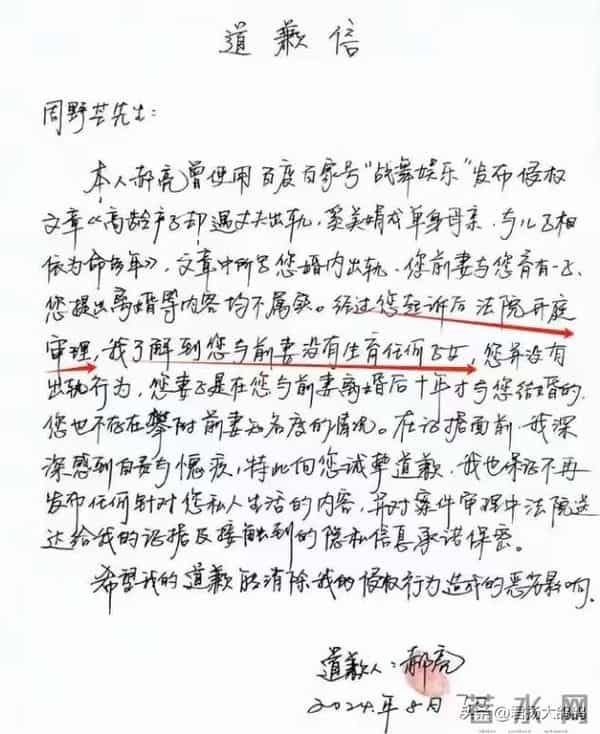 道歉信
周野芒先生：
本人郝亮曾使用百度百家号“战舞娱乐”发布侵权
文章《高龄产子却遇丈夫出轨，奚美娟成单身母亲，与儿子相
依为命多年》，文章中所写您婚内出轨、您前妻与您育有一子、
您提出离婚等内容均不属实。经过您起诉后法院开庭
审理，我了解到您与前妻没有生育任何子女，您并没有
出轨行为，您妻子是在您与前妻离婚后十年才与您结婚的，
您也不存在攀附前妻知名度的情况。在证据面前，我深
深感到自责与愧疚，特此向您诚挚道歉，我也保证不再
发布任何针对您私人生活的内容，并对案件审理中法院送
达给我的证据及接触到的隐私信息承诺保密。
希望我的道歉能消除我的侵权行为造成的恶劣影响。
道歉人：郝亮
2024年8月
头条@君扬大的
若水网